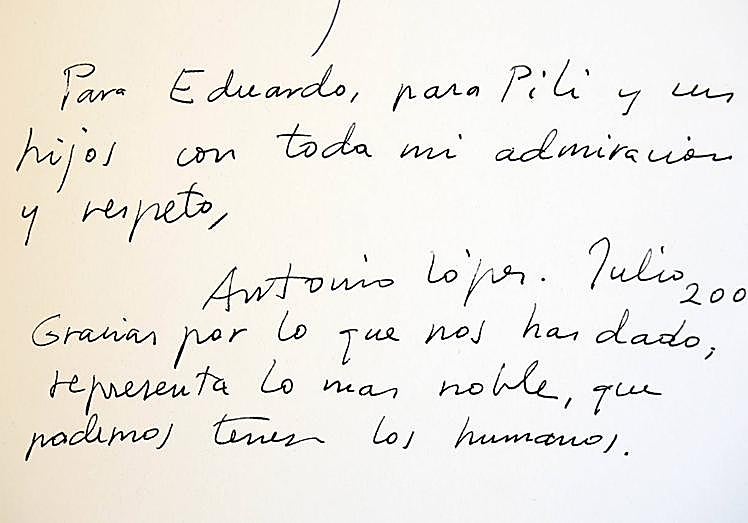 Para Eduardo, para Pili y sus
hijos con toda mi admiracion
y respeto,
Antonio López. Julio 200
Gracias por lo que nos has dado,
representa lo mas noble, que
podemos tener los humanos.